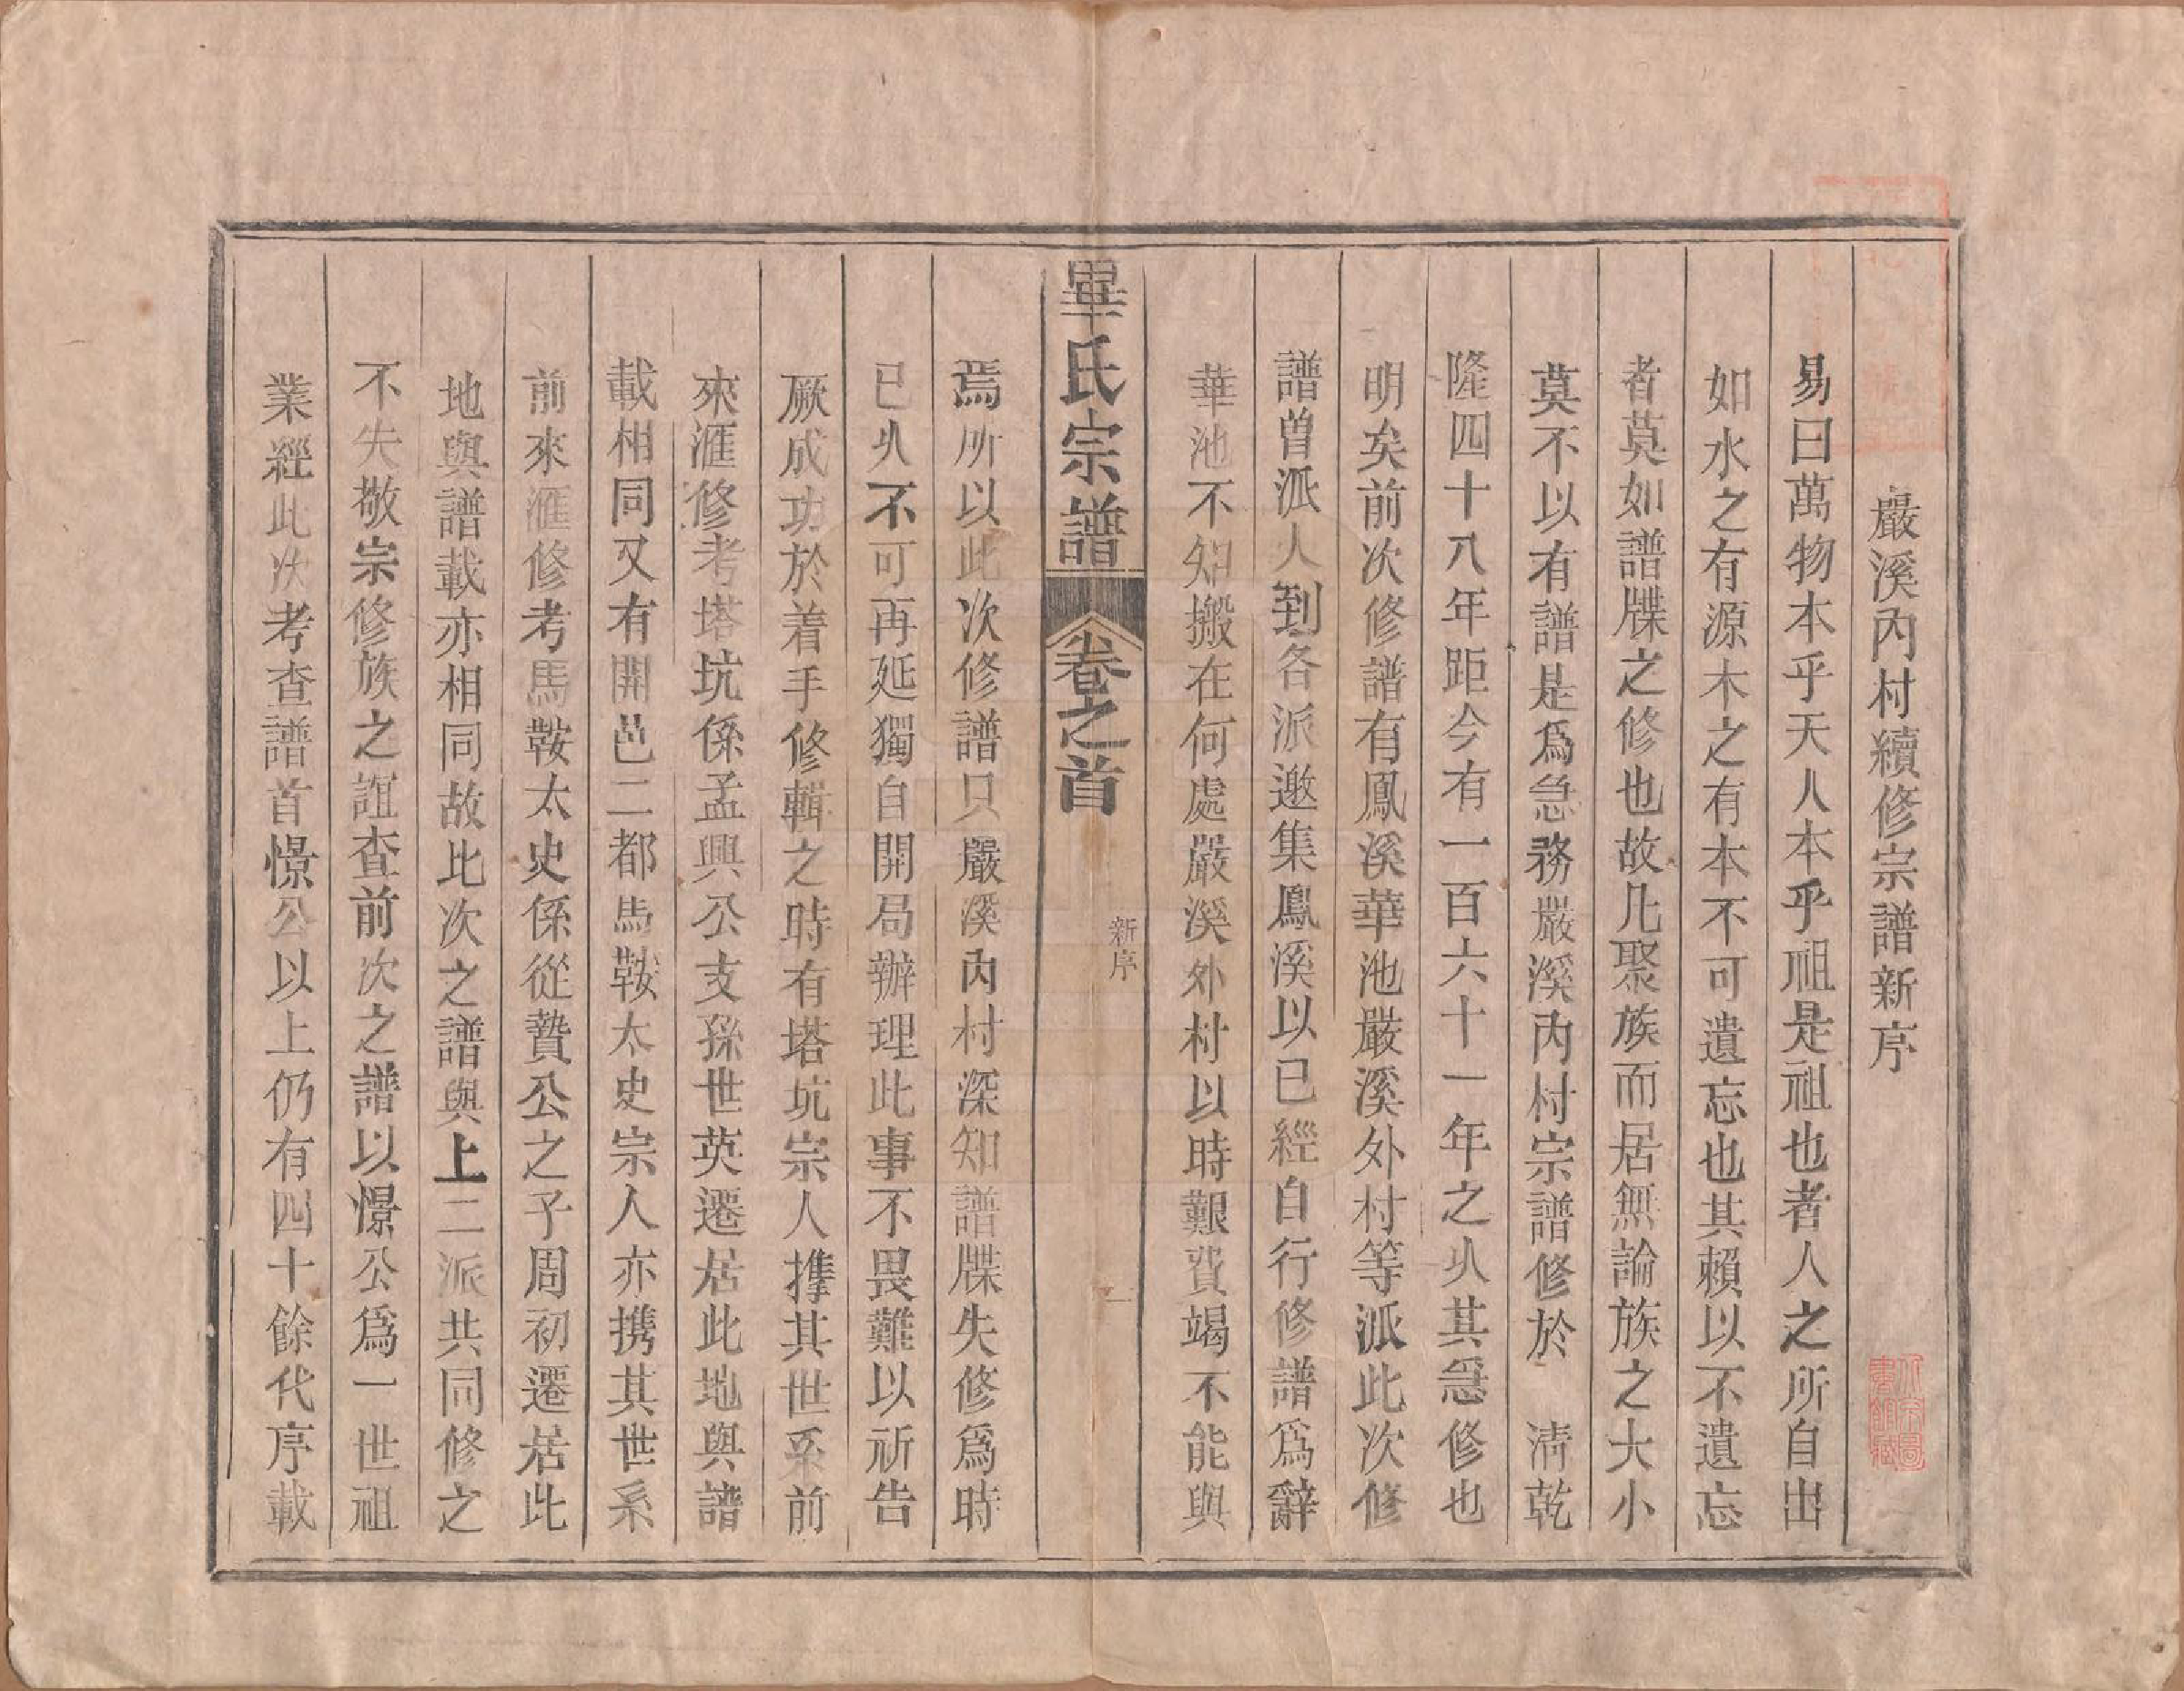 嚴溪內村續修宗譜新序
易曰萬物本乎天人本乎祖是祖也者人之所自出
如水之有源木之有本不可遺忘也其賴以不遺忘
者莫如譜牒之修也故凡聚族而居無論族之大小
莫不以有譜是爲急務嚴溪內村宗譜修於　清乾
隆四十八年距今有一百六十一年之久其急修也
明矣前次修譜有鳳溪華池嚴溪外村等派此次修
譜曾派人到各派邀集鳳溪以已經自行修譜爲辭
華池不知搬在何處嚴溪外村以時艱費竭不能與
畢氏宗譜　卷之首　新序　一
焉所以此次修譜只嚴溪內村深知譜牒失修爲時
已久不可再延獨自開局辦理此事不畏難以祈告
厥成功於着手修輯之時有塔坑宗人擕其世系前
來滙修考塔坑係孟興公支孫世英遷居此地與譜
載相同又有開邑二都馬鞍太史宗人亦携其世系
前來滙修考馬鞍太史係從贄公之子周初遷居此
地與譜載亦相同故此次之譜與上二派共同修之
不失敬宗修族之誼查前次之譜以憬公爲一世祖
業經此次考查譜首憬公以上仍有四十餘代序載